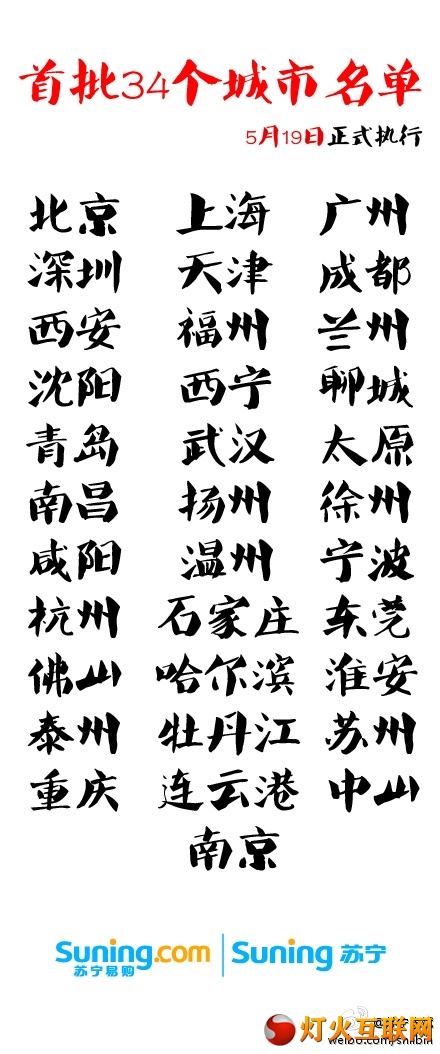 首批34个城市名单
5月19日正式执行
北京 上海 广州
深圳 天津 成都
西安 福州 兰州
沈阳 西宁 聊城
青岛 武汉 太原
南昌 扬州 徐州
咸阳 温州 宁波
杭州 石家庄 东莞
佛山 哈尔滨 淮安
泰州 牡丹江 苏州
重庆 连云港 中山
南京
Suning.com 苏宁易购 Suning 苏宁
灯火互联网